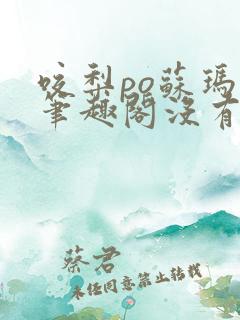 咬梨po蘇瑪
筆趣閣沒有
蔡君
未经同意禁止转载